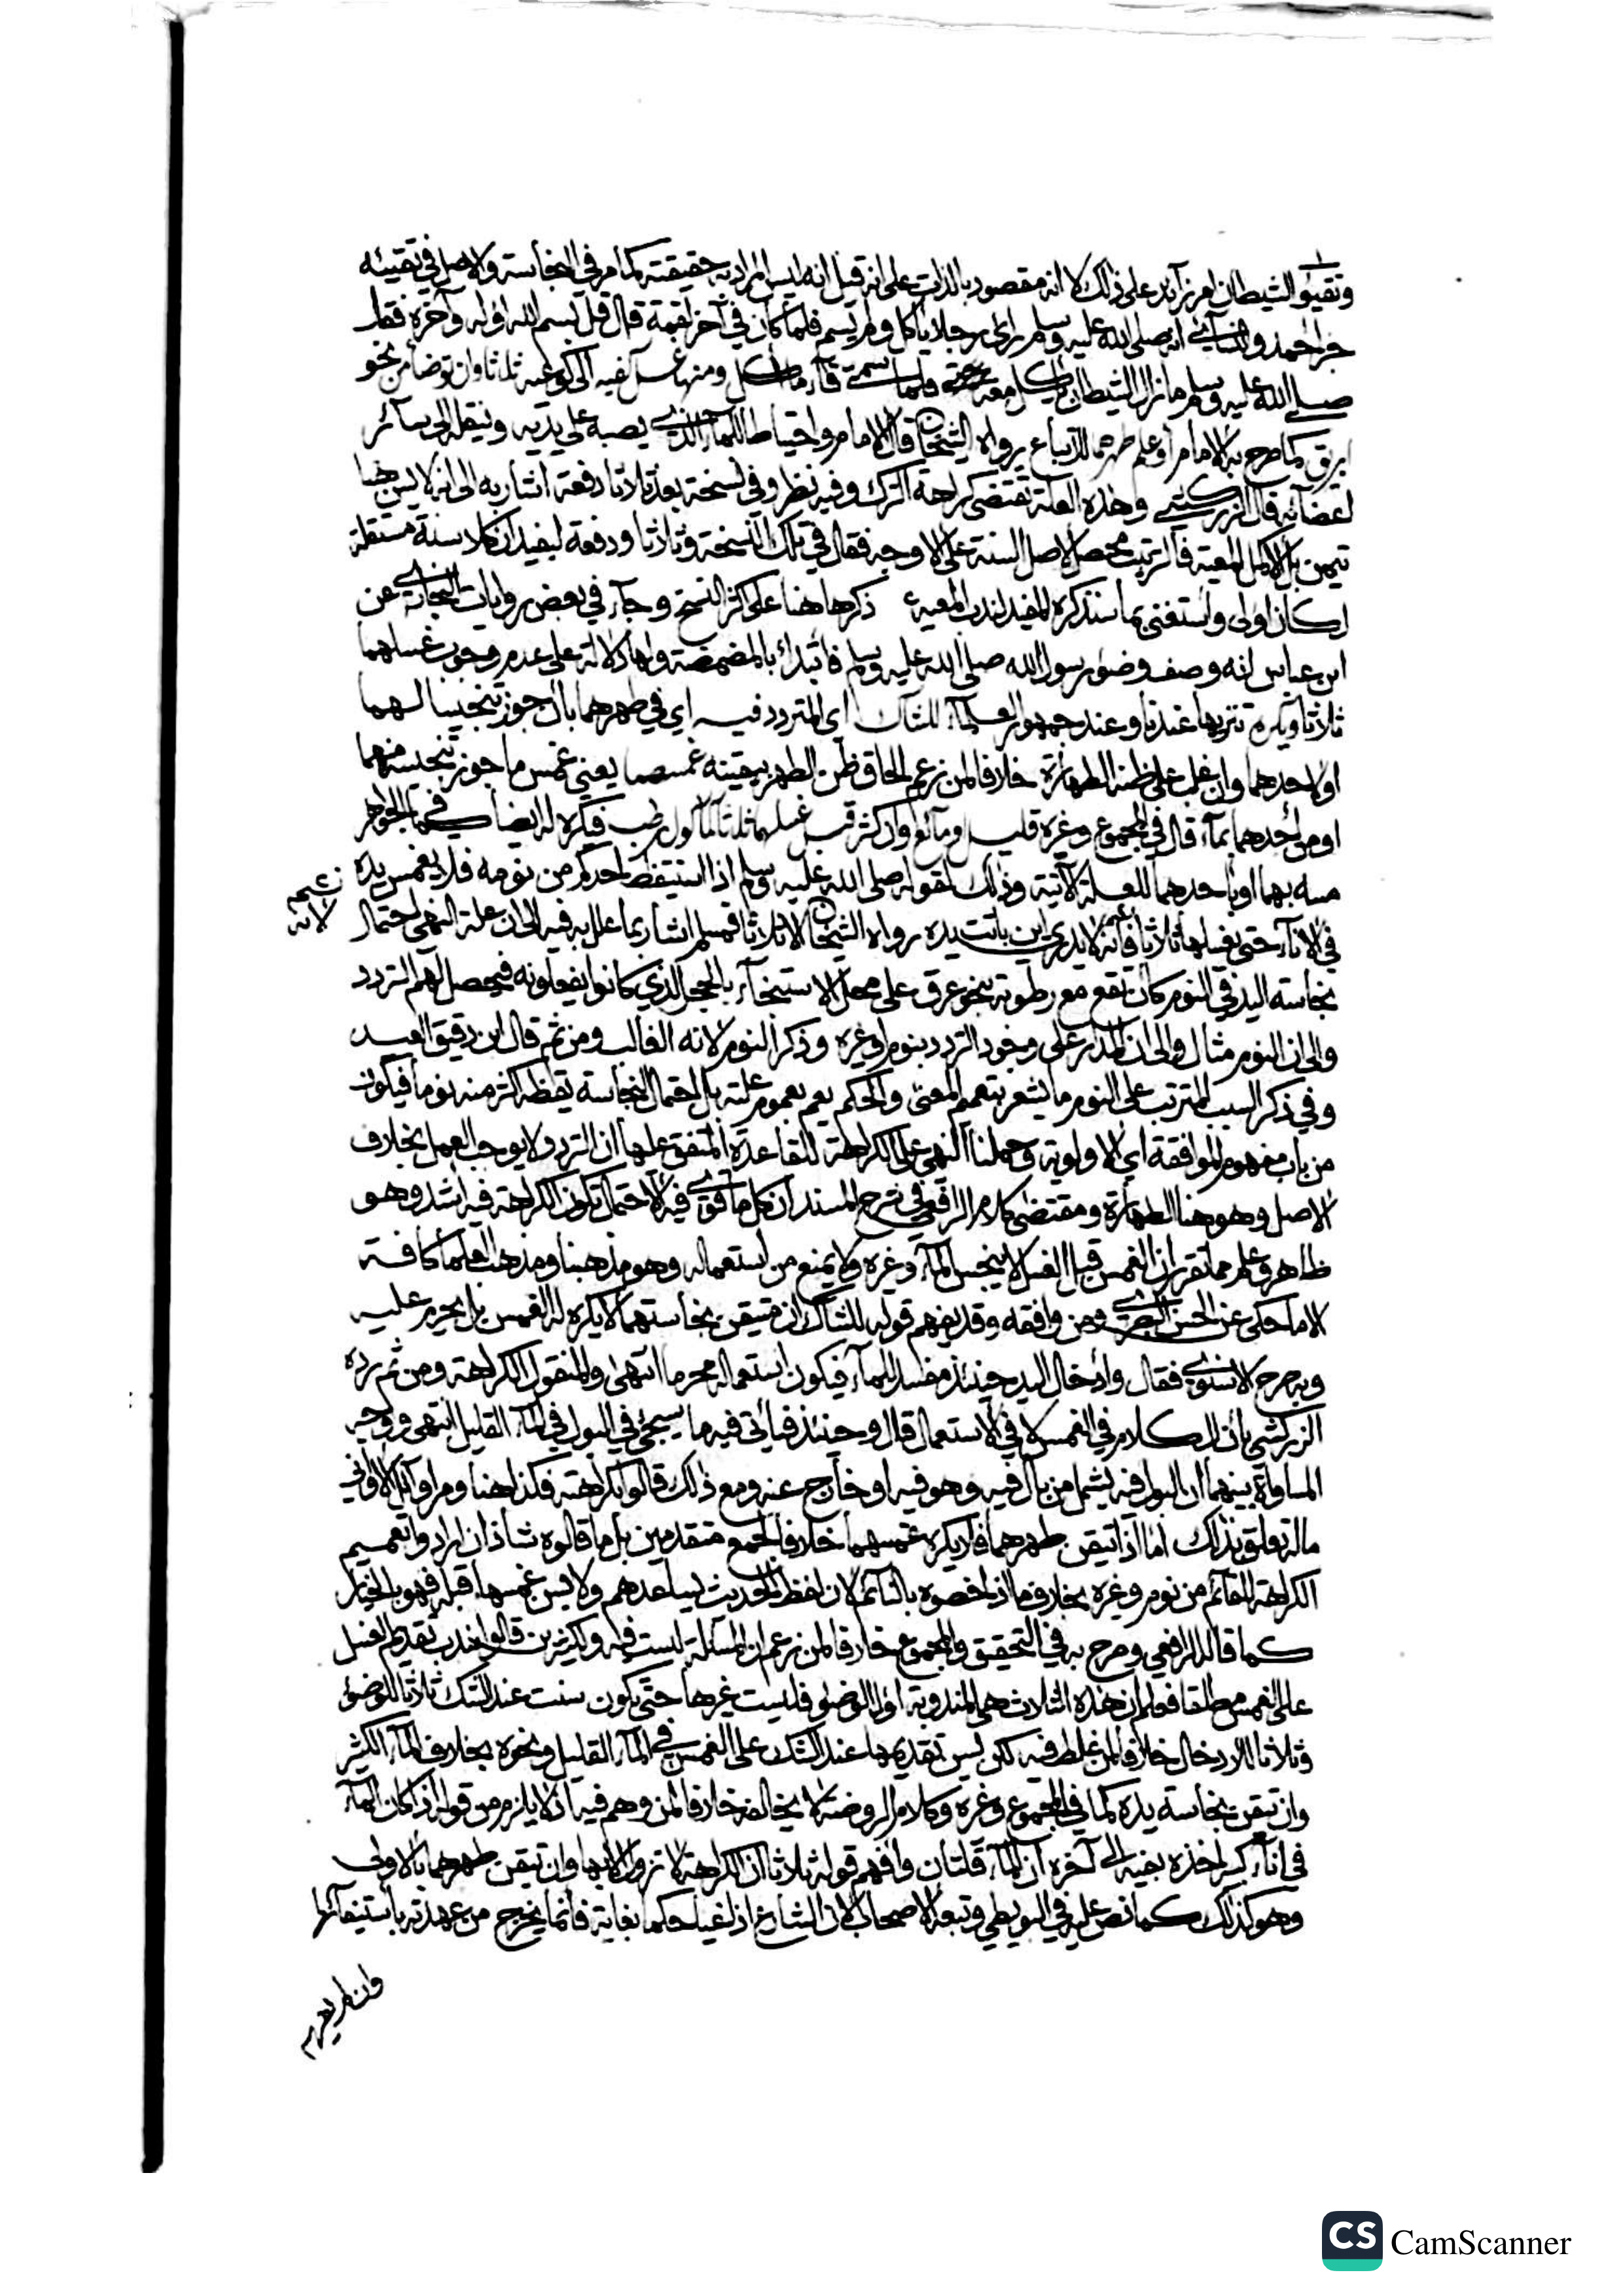 وتقيؤ الشيطان امر زائد على ذلك لا انه مقصود بالذات على انه قيل انه ليس المراد به حقيقته كما مر في النجاسة والاصل في تقيئه
خبر احمد والنسائي انه صلى الله عليه وسلم راى رجلا ياكل ولم يسم فلما كان في آخر لقمة قال قل بسم الله اوله وآخره فقال
صلى الله عليه وسلم ما زال الشيطان ياكل معه حتى فلما سمى قاء ما اكل ومنها غسل كفيه الى كوعيه ثلاثا وان توضأ من نحو
ابريق كما صرح به الامام او علم طهرهما للاتباع رواه الشيخان قال الامام واحتياطا للماء الذي يصبه على يديه وينقله الى سائر
اعضائه قال الزركشي وهذه العلة تقتضي كراهة الترك وفيه نظر وفي نسخة بعد ثلاثا دفعة اشار به الى انه لا يسن هنا
تيمن بل الاكمل المعية فالترتيب محصل لاصل السنة على الاوجه فقال في تلك النسخة وثلاثا ودفعة ليفيد ان كلا سنة مستقلة
لكان اولى واستغنى بما سنذكره المفيد لندب المعية ذكرها هنا على اكثر النسخ وجاء في بعض روايات البخاري عن
ابن عباس انه وصف وضوء رسول الله صلى الله عليه وسلم فابتدأ بالمضمضة ولها دلالة على عدم وجوب غسلهما
ثلاثا ويكره تنزيها عندنا وعند جمهور العلماء للشاك اي المتردد فيه اي في طهرهما بان جوز تنجيسا لهما
او لاحدهما وان غلب على ظنه الطهارة خلافا لمن زعم الحاق ظن الطهر بيقينه غمسهما يعني غمس ما جوز تنجيسه منهما
او من احدهما بماء قال في المجموع وغيره قليل ومائع وان كثر قبل غسلهما ثلاثا مأكول رطب فيكره له ايضا كما في الجواهر
مسه بهما او باحدهما للعلة الآتية وذلك لقوله صلى الله عليه وسلم اذا استيقظ احدكم من نومه فلا يغمس يده
في الاناء حتى يغسلها ثلاثا فانه لا يدري اين باتت يده رواه الشيخان الا ثلاثا فمسلم اشار بما علل به فيه الى ان علة النهي احتمال
نجاسة اليد في النوم كان تقع مع رطوبة بنحو عرق على محل الاستنجاء بالحجر الذي كانوا يفعلونه فيحصل لهم التردد
والى ان النوم مثال والى ان المدار على وجود التردد بنوم او غيره وذكر النوم لانه الغالب ومن ثم قال ابن دقيق العيد
وفي ذكر السبب المترتب على النوم ما يشعر بتعميم المعنى والحكم يعم بعموم علته بل احتمال النجاسة يقظة اكثر منه نوما فيكون
من باب مفهوم الموافقة اي الاولوية وحملنا النهي على الكراهة للقاعدة المتفق عليها ان التردد لا يوجب العمل بخلاف
الاصل وهو هنا الطهارة ومقتضى كلام الرافعي في شرح المسند ان كل ما قوي فيه الاحتمال تكون الكراهة فيه اشد وهو
ظاهر وعلم مما تقرر ان الغمس قبل الغسل لا ينجس الماء وغيره ولا يمنع من استعماله وهو مذهبنا ومذهب العلماء كافة
الا ما حكي عن الحسن البصري ومن وافقه وقد يفهم قوله للشاك ان متيقن نجاستهما لا يكره له الغمس بل يحرم عليه
وبه صرح الاسنوي فقال وادخال اليد حينئذ مفسد للماء فيكون استعماله محرما انتهى والمنقول الكراهة ومن ثم رده
الزركشي بان الكلام في الغمس لا في الاستعمال قال وحينئذ فياتي فيه ما سيجئ في البول في الماء القليل انتهى ووجه
المساواة بينهما ان البول فيه يشمل من بال فيه وهو فيه او خارج عنه ومع ذلك قالوا بكراهته فكذا هنا ومر اوائل الاواني
ما له تعلق بذلك اما اذا تيقن طهرهما فلا يكره غمسهما خلافا لجمع متقدمين بل ما قالوه شاذ ان ارادوا تعميم
الكراهة للقائم من نوم وغيره بخلاف ما اذا خصوه بالنائم لان لفظ الحديث يساعدهم ولا يسن غمسها قبله فهو بالخيار
كما قاله الرافعي وصرح به في التحقيق والمجموع خلافا لمن زعم ان المسئلة ليست فيه ولكثيرين قالوا بندب تقديم الغسل
على الغمس مطلقا فعلم ان هذه الثلاث هي المندوبة اول الوضوء فليست غيرها حتى يكون سنت عند الشك ثلاثا للوضوء
وثلاثا للادخال خلافا لمن غلط فيه لكن يسن تقديمها عند الشك على الغمس في الماء القليل ونحوه بخلاف الماء الكثير
وان تيقن نجاسة يده كما في المجموع وغيره وكلام الروضة لا يخالفه خلافا لمن وهم فيه اذ لا يلزم من قوله اذا كان الماء
في اناء كبير اخذه بفيه الى آخره ان الماء قلتان وافهم قوله ثلاثا ان الكراهة لا تزول الا بها وان تيقن طهرهما بالاولى
وهو كذلك كما نص عليه في البويطي وتبعه الاصحاب لان الشارع اذا غيا حكما بغاية فانما يخرج من عهدته باستيفائها